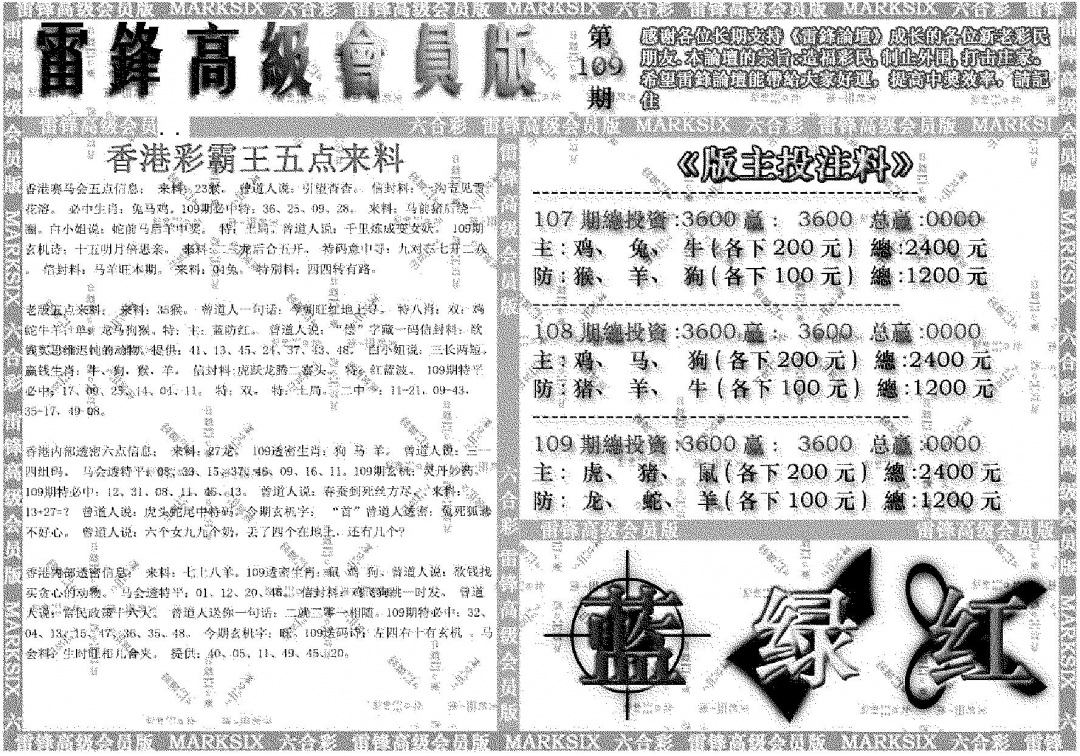 雷锋高级会员版 MARKSIX 六合彩 雷锋高级会员版 MARKSIX 六合彩 雷锋高级会员版 MARKSIX 六合彩
雷鋒高級會員版
第
109
期
感谢各位长期支持《雷鋒論壇》成长的各位新老彩民
朋友.本論壇的宗旨:造福彩民,制止外围,打击庄家.
希望雷鋒論壇能帶給大家好運，提高中獎效率，請記
住
雷锋高级会员 六合彩 雷锋高级会员版 MARKSIX 六合彩 雷锋高级会员版 MARKSI
香港彩霸王五点来料
香港赛马会五点信息： 来料：23猴。 曾道人说：引望杳杳。 信封料：一沟春见雪
花溶。 必中生肖：兔马鸡。109期必中特：36、25、09、28。 来料：马前猪后绕一
圈。白小姐说：蛇前马后羊中奖。 特：土局。曾道人说：千里炼成变女妖。 109期
玄机诗：十五明月倍思亲。 来料：二龙后合五开。 特码意中寻：九对在七开二八
。 信封料：马羊旺本期。 来料：04兔。 特别料：四四转有路。
老版五点来料： 来料：35猴。 曾道人一句话：今朝旺红地上寻。 特八肖：双：鸡
蛇牛羊：单：龙马狗猴。特：主：蓝防红。 曾道人说： 字藏一码信封料：欲
钱买思维迟钝的动物。提供：41、13、45、24、37、43、48。 白小姐说：三长两短。
赢钱生肖：牛、狗、猴、羊。 信封料:虎跃龙腾二 特：红蓝波。 109期特平
必中：17、09、25、14、04、11。 特：双。 特：土局。二中一：11-21、09-43、
35-17、49-08。
香港内部透密六点信息： 来料：27龙。 109透密生肖：狗 马 羊。 曾道人说：三一
四组码。 马会透特平：08、33、15、37、46、09、16、11。109期玄机：灵丹妙药。
109期特必中：12、31、08、11、05、13。 曾道人说：春蚕到死丝方尽。 来料：
13+27=？ 曾道人说：虎头蛇尾中特码。今期玄机字： “首”曾道人透密：兔死狐悲
不好心。 曾道人说：六个女九九个奶，丢了四个在地上，还有几个?
香港内部透密信息： 来料：七上八羊。109透密生肖：鼠 鸡 狗。曾道人说：欲钱找
买贪心的动物。 马会透特平：01、12、20、46。 信封料：鸡飞狗跳一时发。 曾道
人说：富民政策十六大。 曾道人送你一句话：二跳三零一相随。109期特必中：32、
04、13、15、47、36、35、48。 今期玄机字：旺。109送码诗：左四右十有玄机 。马
会料：生时旺相几食夹。 提供：40、05、11、49、45、20。
《版主投注料》
107 期總投資:3600 赢: 3600 总赢:0000
主: 鸡、 兔、 牛(各下200元) 總:2400元
防: 猴、 羊、 狗(各下100元) 總:1200元
108 期總投資:3600 赢: 3600 总赢:0000
主: 鸡、 马、 狗(各下200元) 總:2400元
防: 猪、 羊、 牛(各下100元) 總:1200元
109 期總投資:3600 赢: 3600 总赢:0000
主: 虎、 猪、 鼠(各下200元) 總:2400元
防: 龙、 蛇、 羊(各下100元) 總:1200元
雷锋高级会员版 雷锋高级会员版
藍 绿 红
雷锋高级会员版 MARKSIX 六合彩 雷锋高级会员版 MARKSIX 六合彩 雷锋高级会员版 MARKSIX 六合彩